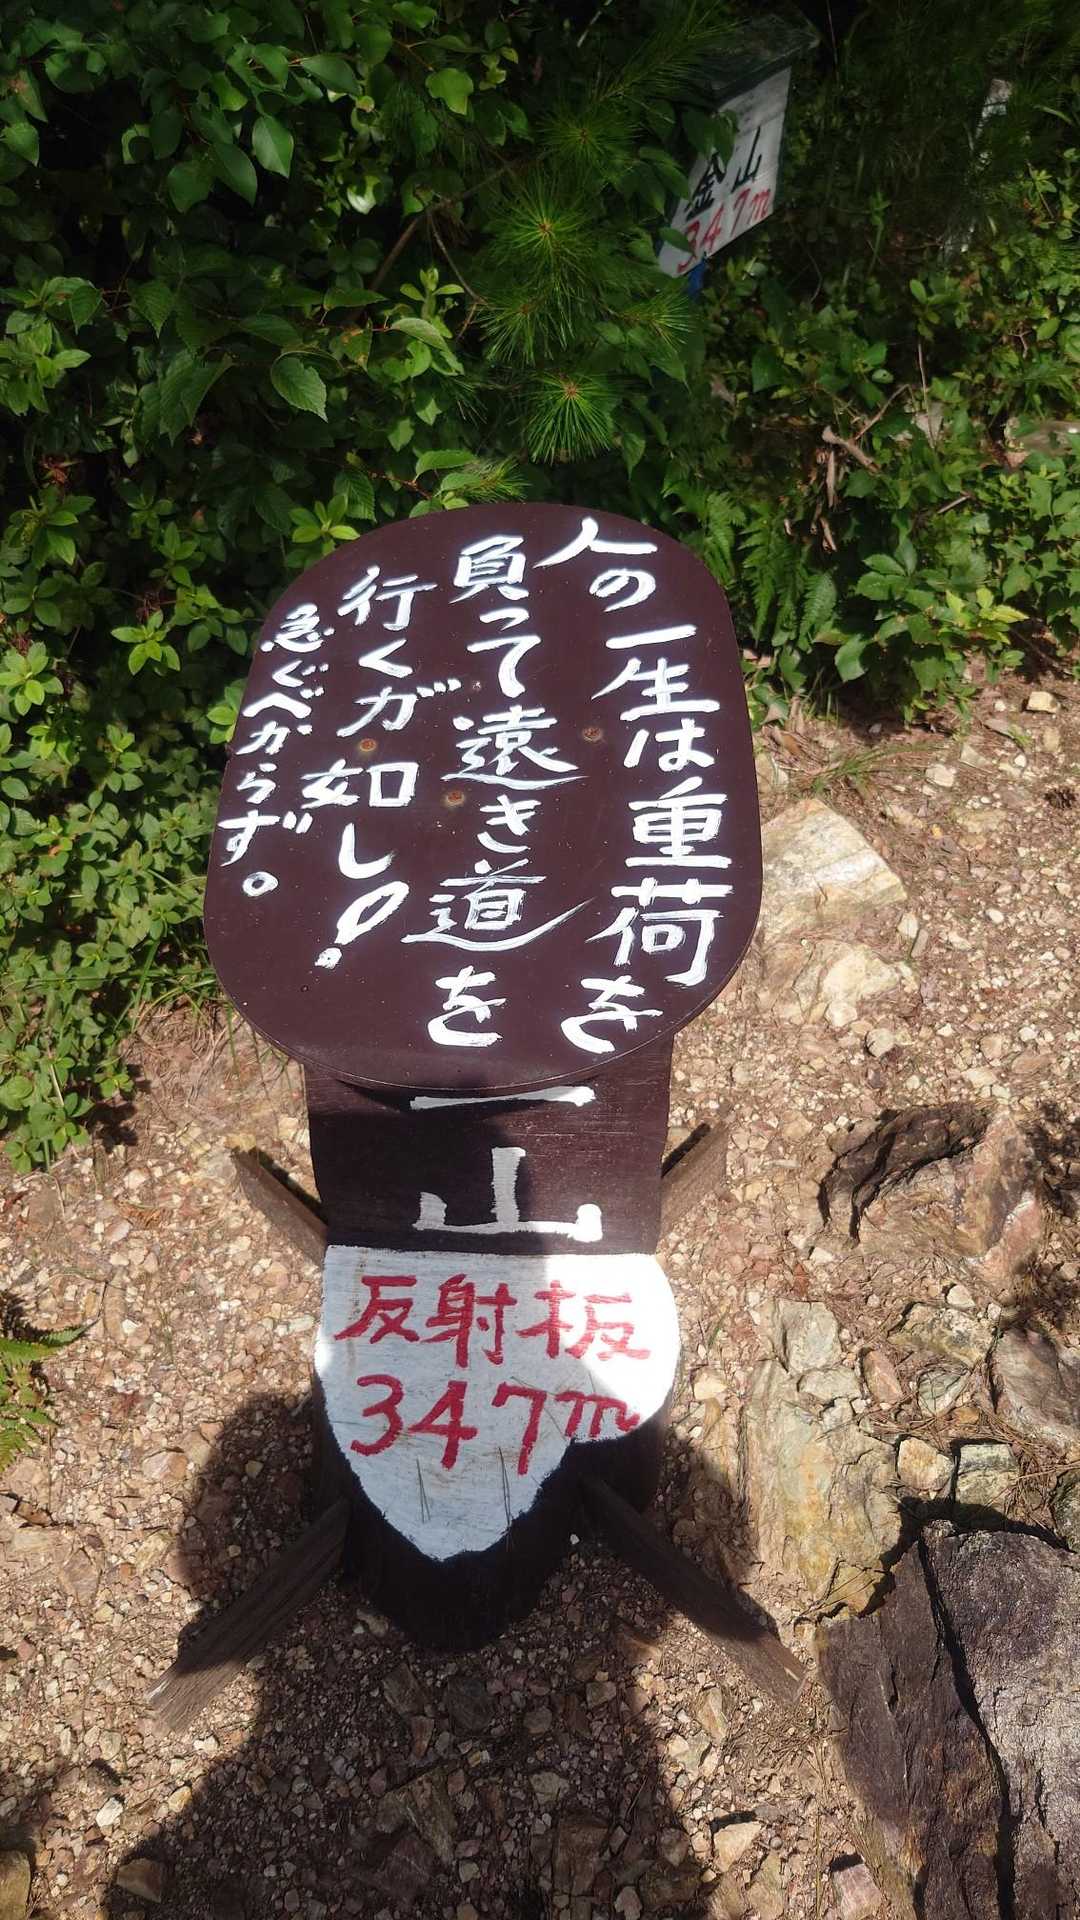 人の一生は重荷を
負って遠き道を
行くが如し!
急ぐべからず。
山
反射板
347m
金山
347m